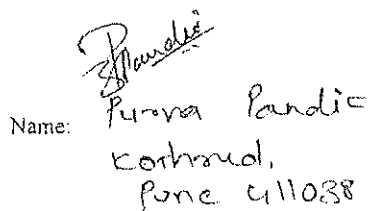 Pandit
Name: Purva Pandit
Kothrud,
Pune 411038